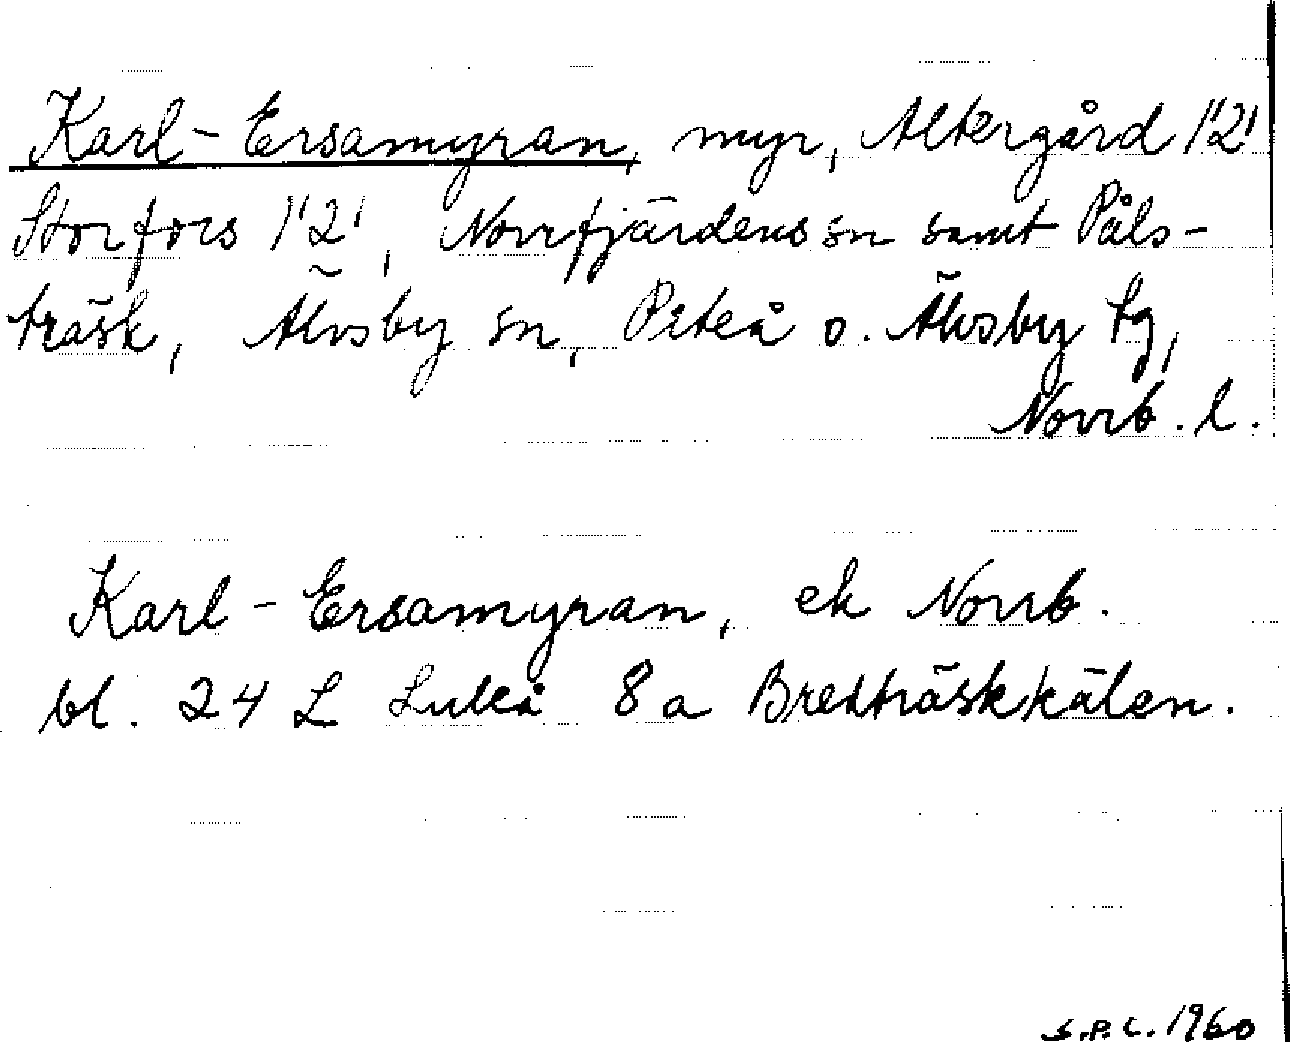 Karl-Ersamyran, myr, Altergård 1'2'
Storfors 1'2', Norrfjärdens sn samt Påls-
träsk, Älvsby sn, Piteå o. Älvsby tg,
Norrb. l.
Karl-Ersamyran, ek Norrb.
bl. 24 L Luleå 8a Bredträskkälen.
S.P.L. 1960